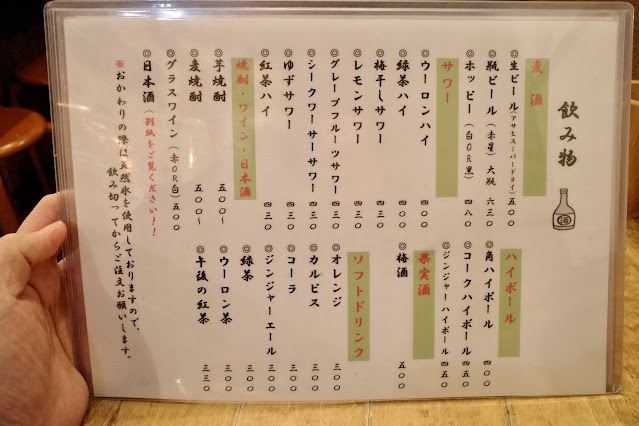 飲み物
酒
麦酒
◎生ビール(アサヒスーパードライ)五〇〇
◎瓶ビール(赤星)大瓶 六三〇
◎ホッピー(白OR黒) 四八〇
サワー
◎ウーロンハイ 四〇〇
◎緑茶ハイ 四〇〇
◎梅干しサワー 四三〇
◎レモンサワー 四三〇
◎グレープフルーツサワー 四三〇
◎シークワーサーサワー 四三〇
◎ゆずサワー 四三〇
◎紅茶ハイ 四三〇
焼酎・ワイン・日本酒
◎芋焼酎 五〇〇〜
◎麦焼酎 五〇〇〜
◎グラスワイン(赤OR白)五〇〇
◎日本酒(別紙をご覧ください!!)
ハイボール
◎角ハイボール 四〇〇
◎コークハイボール 四五〇
◎ジンジャーハイボール 四五〇
果実酒
◎梅酒 五〇〇
ソフトドリンク
◎オレンジ 三〇〇
◎カルピス 三〇〇
◎コーラ 三〇〇
◎ジンジャーエール 三〇〇
◎緑茶 三〇〇
◎ウーロン茶 三〇〇
◎午後の紅茶 三三〇
※おかわりの際は天然氷を使用しておりますので、
飲み切ってからご注文お願いします。